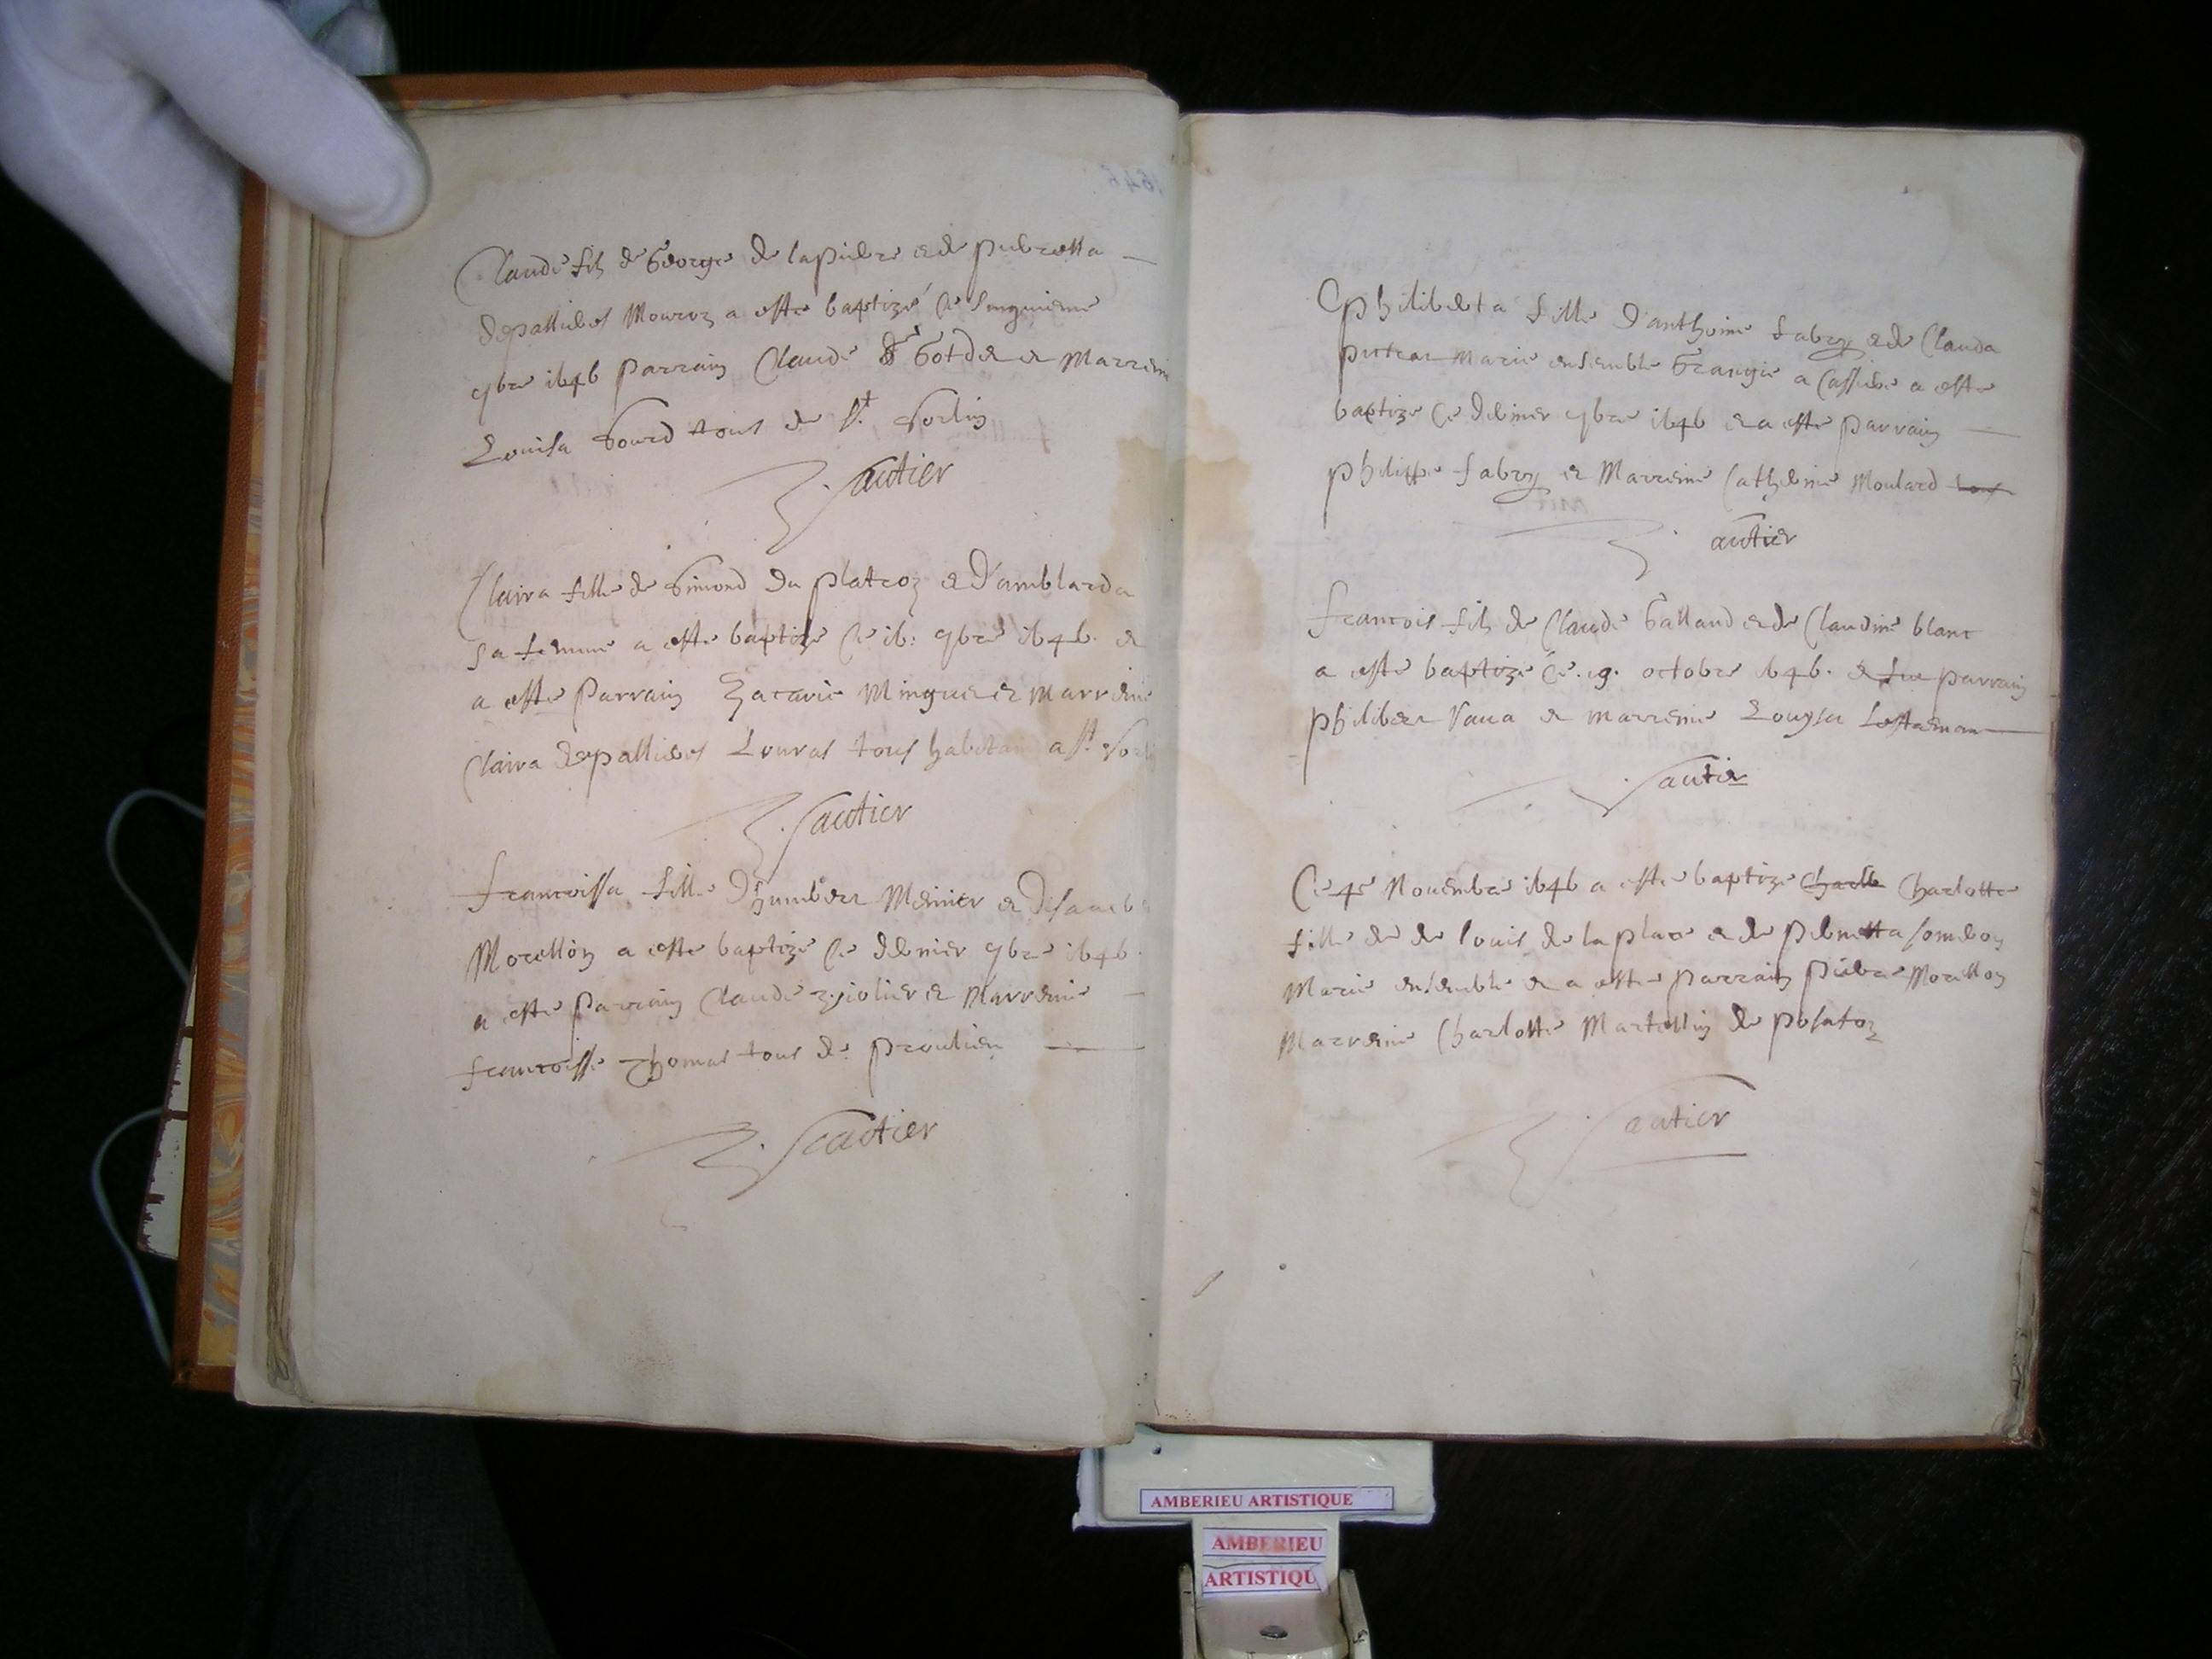 Claude filz de George de lapierre et de pierretta
depallieres Mouroz a este baptizé ce cinquieme
9bre 1646 parrain Claude et Marreine
Louisa tous de St. Sorlin
Gautier
Claira fille de Simond du platroz et d'amblarda
sa femme a este baptize ce 16: 9bre 1646. et
a este parrain Zacarie Minguet et marreine
Claira depallieres Louras tous habitans a St. Sorlin
Gautier
francoissa fille d'humbert Meinier et
Morellon a este baptize ce dernier 9bre 1646.
a este parrain Claude et Marreine
francoisse Thomas tous de proulieu
Gautier
philiberta fille d'anthoine fabry et de Clauda
Marie ensemble a este
baptize ce dernier 9bre 1646 et a este parrain
philippe fabry et Marreine Catherine Moulard
autier
francois filz de Claude Galland et de Claudine blanc
a este baptize ce .19. octobre 1646. et fut parrain
philibert et marreine Louysa
Gautier
Ce 4e Novembre 1646 a este baptize Charlotte
fille de de louis de la place et de pernetta
Marie ensemble et a este parrain pierre Morellon
Marreine Charlotte Martellin de posafoz
Gautier
AMBERIEU ARTISTIQUE
AMBERIEU
ARTISTIQU